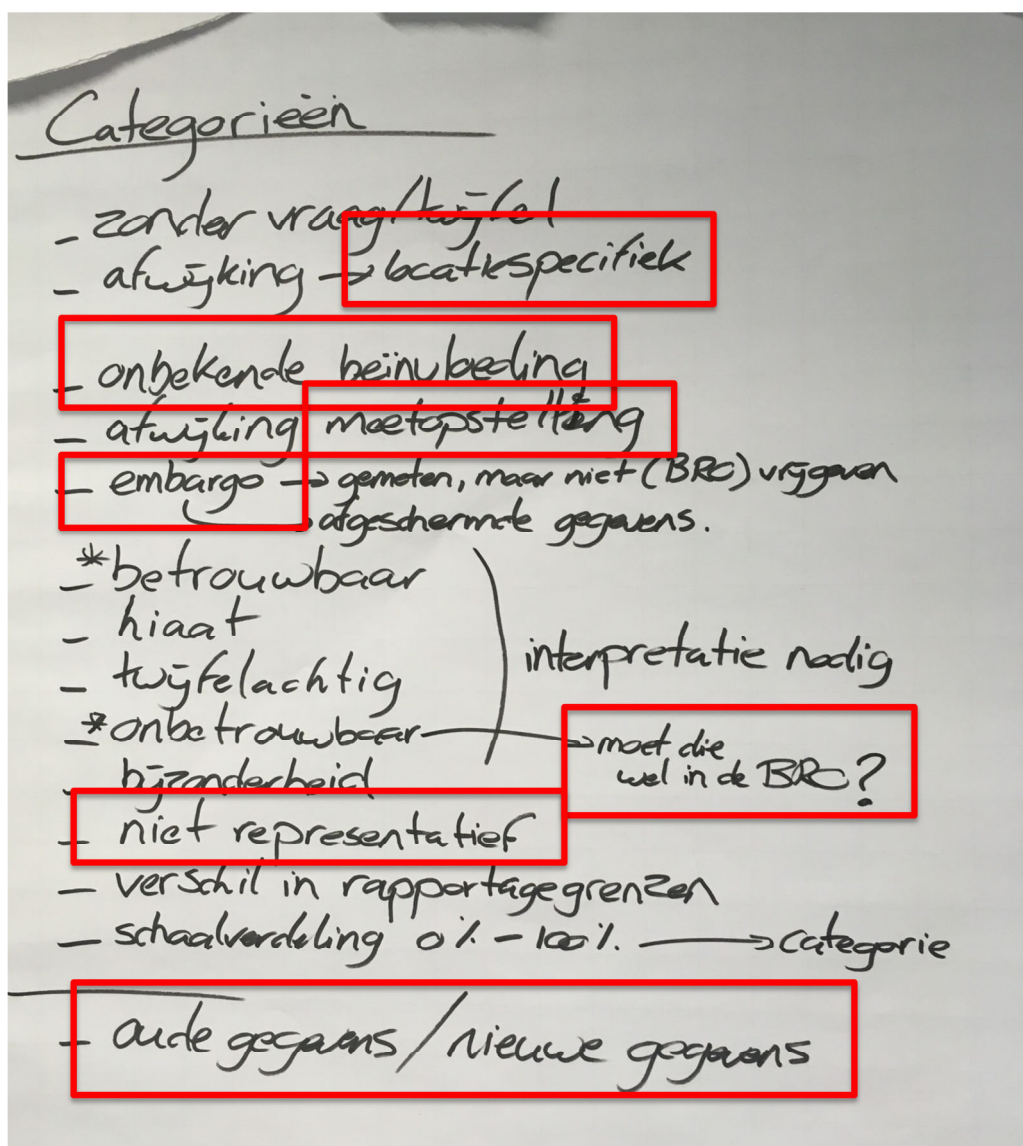 Categorieën
- zonder vraag/twijfel
- afwijking → locatiespecifiek
- onbekende beïnvloeding
- afwijking meetopstelling
- embargo → gemeten, maar niet (BRO) vrijgeven
→ afgeschermde gegevens.
- *betrouwbaar
- hiaat
- twijfelachtig
interpretatie nodig
- *onbetrouwbaar → moet die
wel in de BRO?
- bijzonderheid
- niet representatief
- verschil in rapportagegrenzen
- schaalverdeling 0% - 100% → categorie
- oude gegevens / nieuwe gegevens